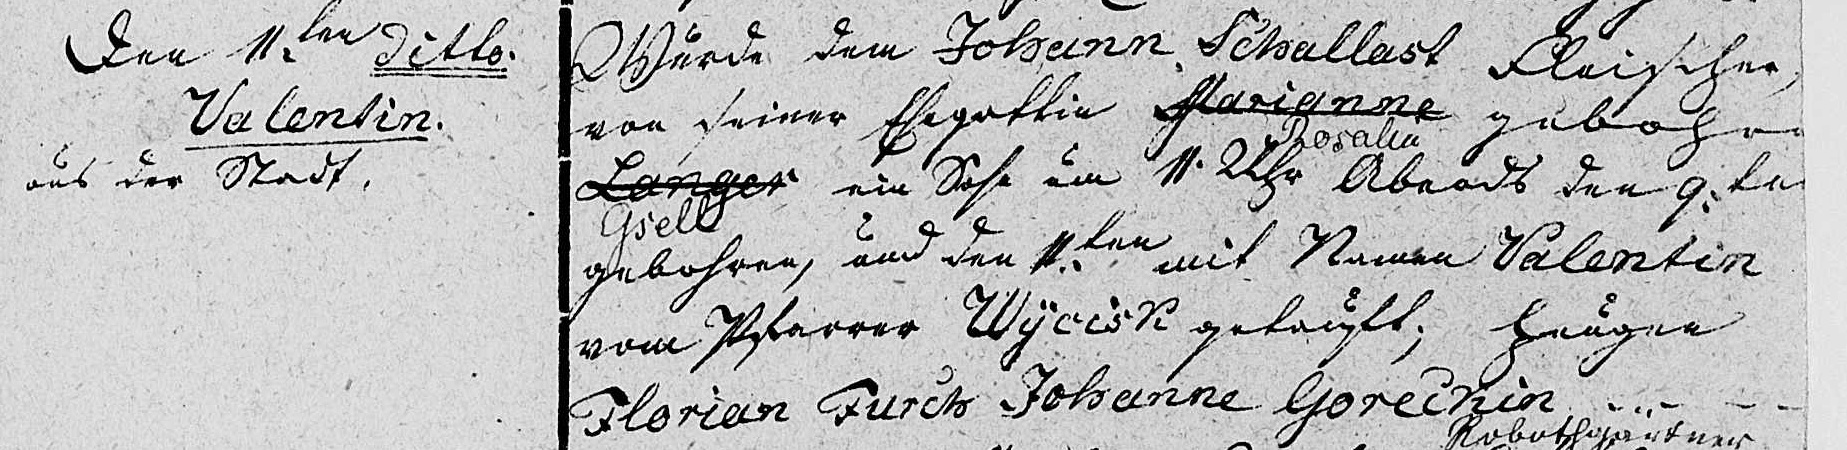 Den 11.ten ditto.
Valentin.
aus der Stadt.
Wurde dem Johann Schallast Fleischer,
von seiner Ehegattin Marianne gebohrne
Rosalia
Langer ein Sohn um 11. Uhr Abends den 9.ten
Gsell
gebohren, und den 11.ten mit Namen Valentin
vom Pfarrer Wÿcisk getauft; Zeugen
Florian Furch Johanne Gorechin
Robothgärtner